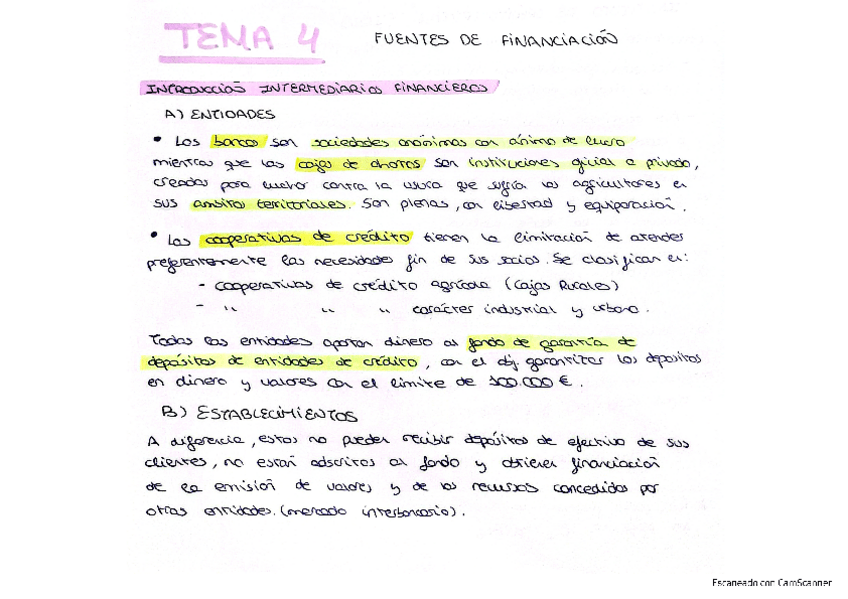 TEMA 4 FUENTES DE FINANCIACIÓN
INTRODUCCIÓN INTERMEDIARIOS FINANCIEROS
A) ENTIDADES
• Los bancos son sociedades anónimas con ánimo de lucro
mientras que las cajas de ahorros son instituciones oficial o privado,
creadas para luchar contra la usura que sufría los agricultores en
sus ámbitos territoriales. Son plenas, con libertad y equiparación.
• Las cooperativas de crédito tienen la limitación de atender
preferentemente las necesidades fin de sus socios. Se clasifican en:
- cooperativas de crédito agrícola (Cajas Rurales)
- " " " carácter industrial y urbano.
Todas las entidades aportan dinero al fondo de garantía de
depósitos de entidades de crédito, con el obj garantizar los depositos
en dinero y valores con el límite de 100.000 €.
B) ESTABLECIMIENTOS
A diferencia, estos no pueden recibir depósitos de efectivo de sus
clientes, no están adscritos al fondo y obtienen financiación
de la emisión de valores y de los recursos concedidos por
otras entidades. (mercado interbancario).
Escaneado con CamScanner